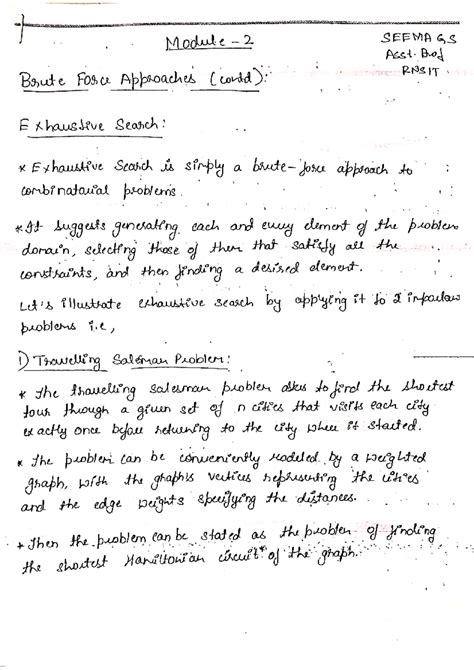 Module - 2
SEEMA G S
Asst. Prof
RNSIT
Brute Force Approaches (contd):
Exhaustive Search:
* Exhaustive Search is simply a brute-force approach to
combinatorial problems.
* It suggests generating each and every element of the problem
domain, selecting those of them that satisfy all the
constraints, and then finding a desired element.
Let's illustrate exhaustive search by applying it to 2
problems i.e,
1) Travelling Salesman Problem:
* The travelling salesman problem asks to find the shortest
tour through a given set of n cities that visits each city
exactly once before returning to the city where it started.
* The problem can be conveniently modeled by a weighted
graph, with the graph's vertices representing the cities
and the edge weights specifying the distances.
* Then the problem can be stated as the problem of finding
the shortest Hamiltonian circuit* of the graph.